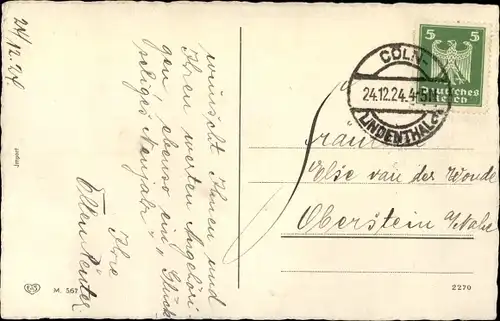 24/12.24
wünscht Ihnen und
Ihren werten Angehöri-
gen ebenso ein „Glück-
seliges Neujahr"
Ihre
Import
M. 567
CÖLN-
24.12.24.4-5N
LINDENTHAL
5 5
Deutsches
Reich
Fräulein
Else van der Woude
Oberstein a/Nahe
2270